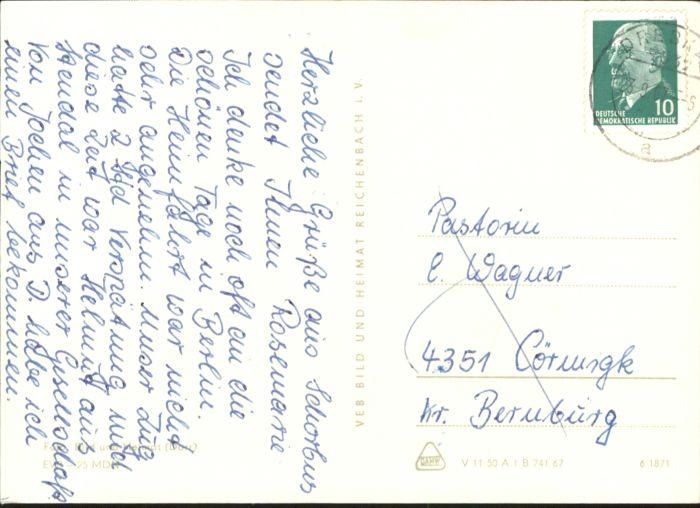 Herzliche Grüße aus Schorbus
sendet Ihnen Rosemarie
Ich denke noch oft an die
schönen Tage in Berlin.
Die Heimfahrt war nicht
sehr angenehm. Unser Zug
hatte 2 Std Verspätung und
diese Zeit war Helmut aus
Stendal in unserer Gesellschaft
Von Jochen aus D. habe ich
einen Brief bekommen.
VEB BILD UND HEIMAT REICHENBACH I. V.
10
DEUTSCHE
DEMOKRATISCHE REPUBLIK
Pastorin
E. Wagner
4351 Cörmigk
Kr. Bernburg
V 11 50 A 1 B 741 67
6 1871